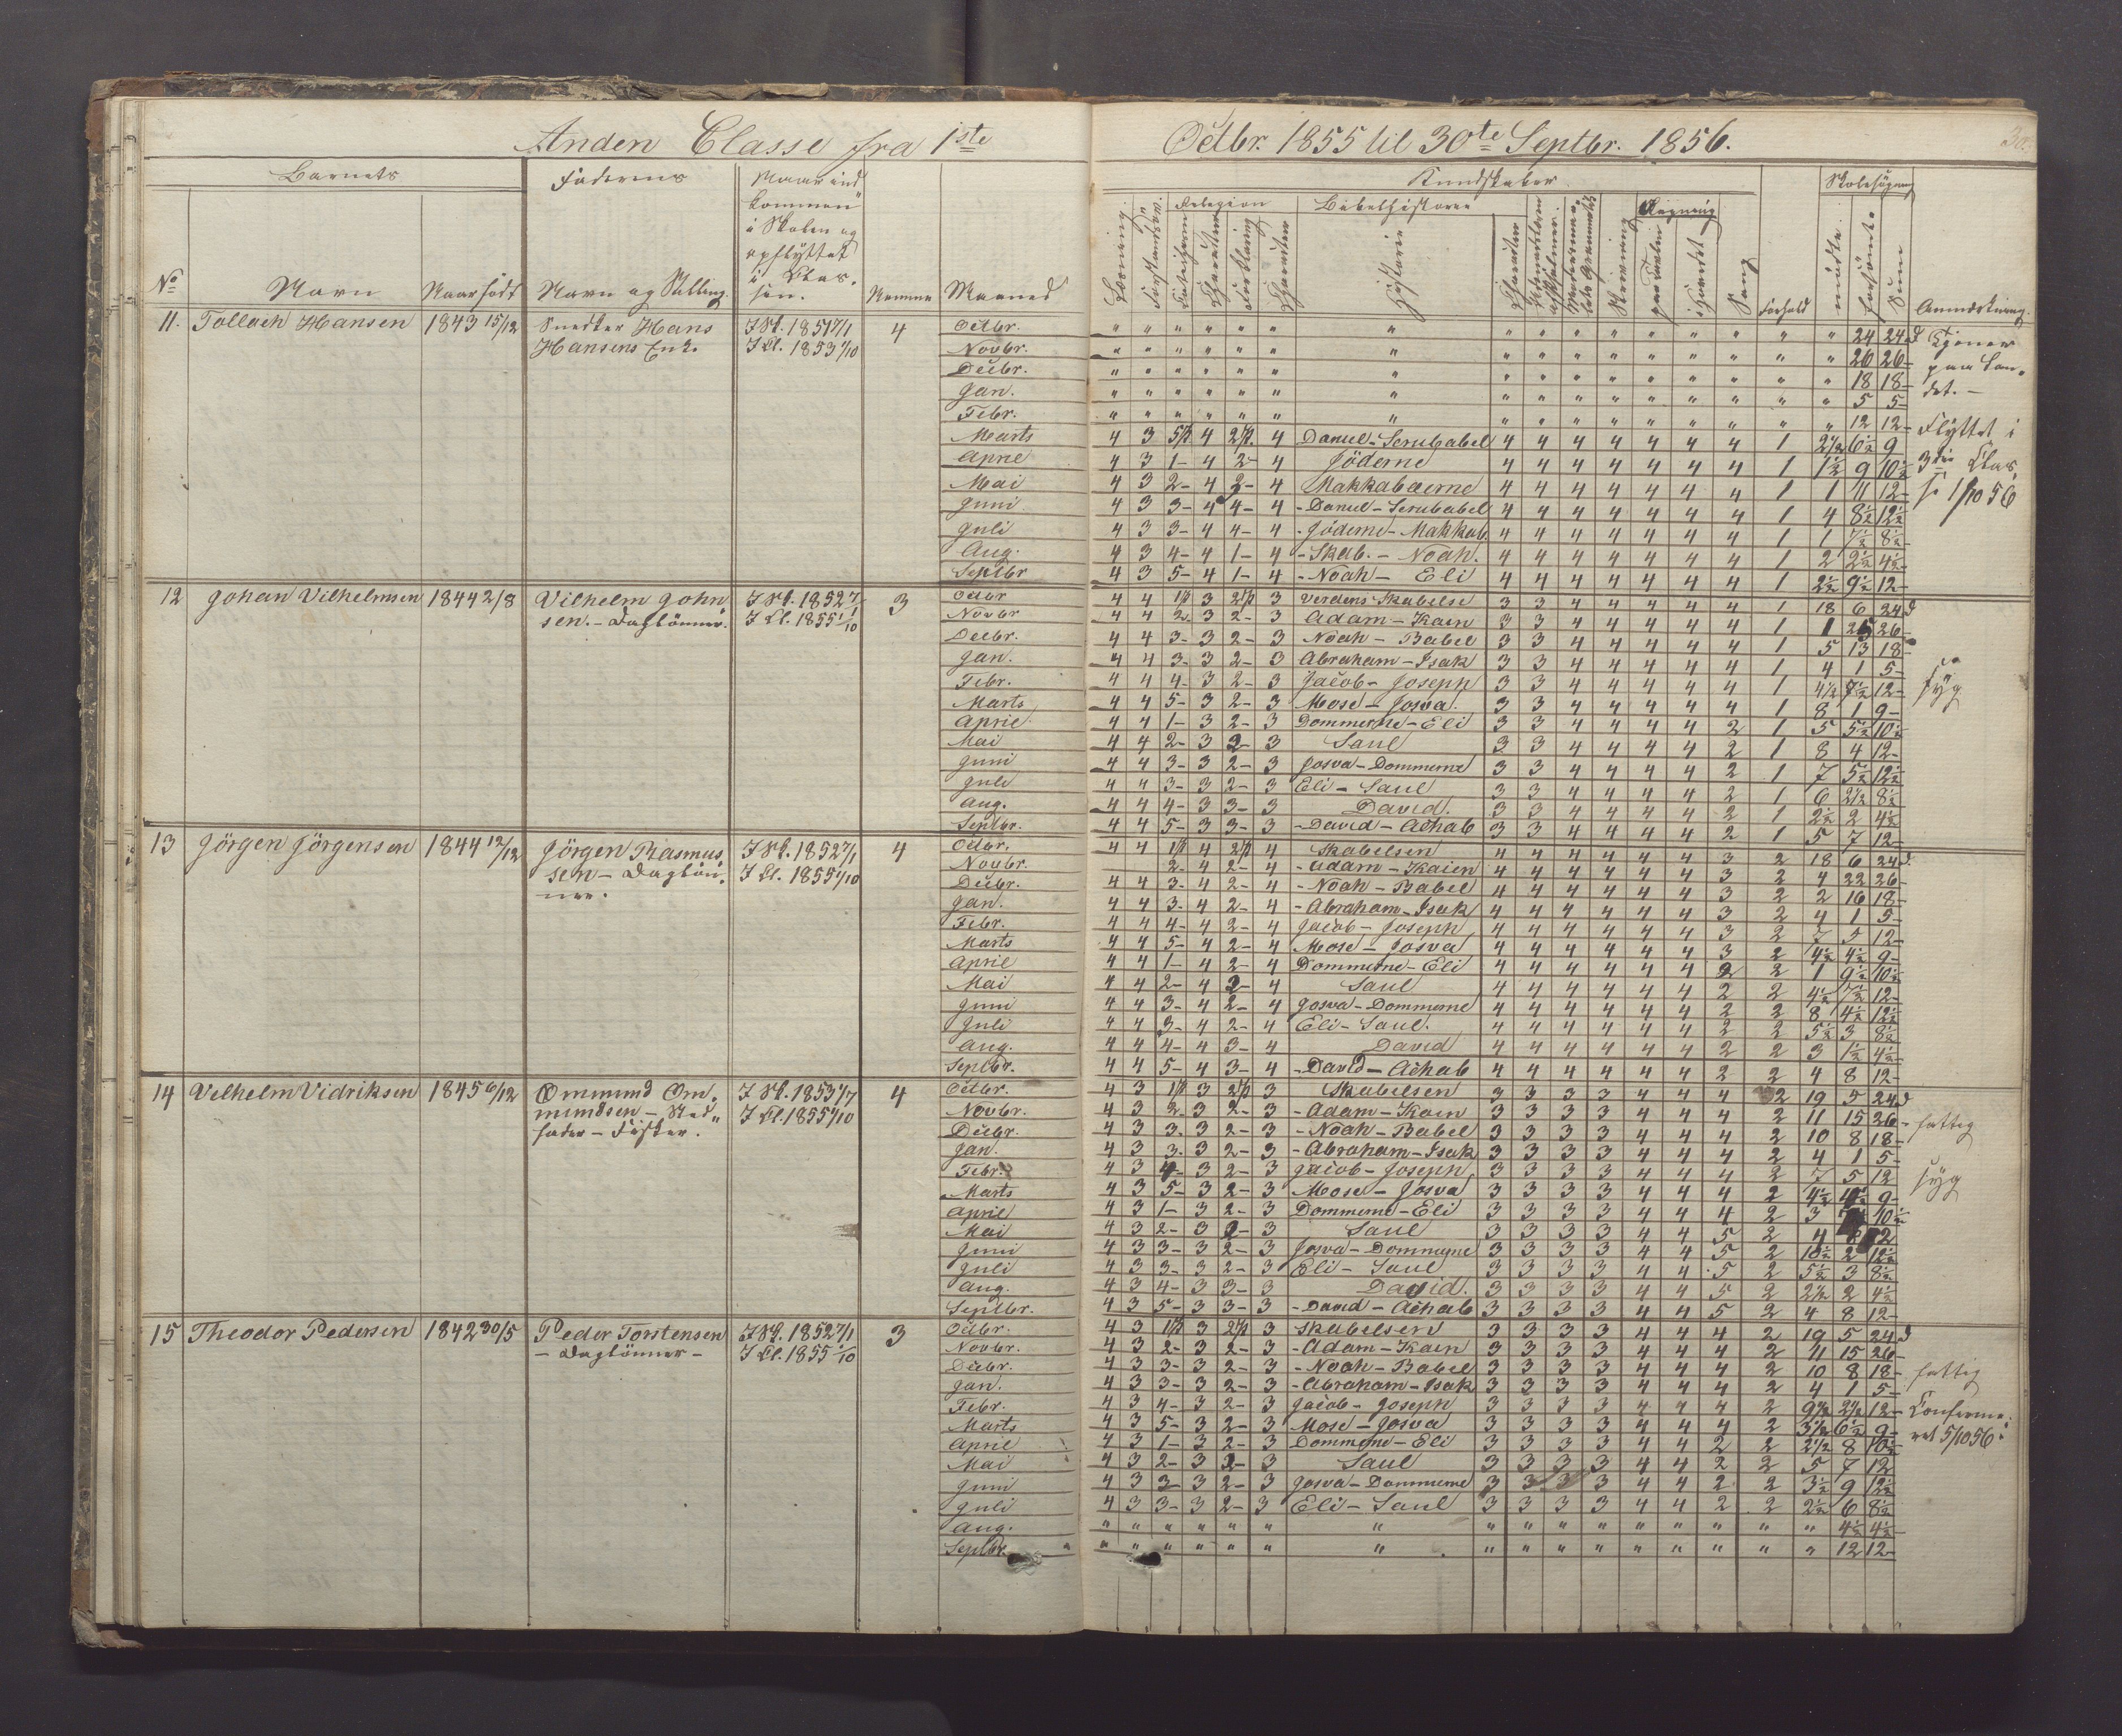 Anden Classe fra 1ste
Octbr. 1855 til 30te Septbr. 1856.
Barnets
Faderens
Naar ind
kommen
i Skolen og
opflyttet
i Clas-
sen.
No
Navn
Naar født
Navn og Stilling
Maaned
Kundskaber
Religion
Bibelhistorie
Regning
Historie
Sang
Forhold
mødte
forsømte
Sum
Anmærkning
11. Tollach Hansen 1843 15/12
Snedker Hans
Hansens Enke
I Sk. 1851 7/1
I Cl. 1853 1/10
4
Octbr. 24 24 d
Novbr. 26 26
Decbr. 18 18
Jan. 5 5
Febr. 12 12
Marts 4 3 4 4 Daniel-Serubabel 4 4 4 4 4 4 4 1 2½ 6½ 9
April 4 3 1 4 2 4 Jöderne 4 4 4 4 4 4 4 1 1½ 9 10½
Mai 4 3 2 4 2 4 Makkabæerne 4 4 4 4 4 4 4 1 1 11 12
Juni 4 3 3 4 4 4 Daniel-Serubabel 4 4 4 4 4 4 4 1 4 8½ 12½
Juli 4 3 3 4 4 4 Jöderne-Makkab. 4 4 4 4 4 4 4 1 1 7½ 8½
Aug. 4 3 4 4 1 4 Skab. - Noah. 4 4 4 4 4 4 4 1 2 2½ 4½
Septbr 4 3 5 4 1 4 Noah - Eli 4 4 4 4 4 4 4 1 2½ 9½ 12
Tjener
paa Lan-
det. -
Flyttet i
3die Clas-
se 1/10 56
12 Johan Vilhelmsen 1844 2/8
Vilhelm John-
sen. - Daglönner.
I Sk. 1852 7/1
I Cl. 1855 1/10
3
Octbr 4 4 3 3 Verdens Skabelse 3 3 4 4 4 4 4 1 18 6 24 d
Novbr 4 4 2 3 2 3 Adam - Kain 3 3 4 4 4 4 4 1 1 25 26
Decbr. 4 4 3 3 2 3 Noah - Babel 3 3 4 4 4 4 4 1 5 13 18
Jan. 4 4 3 3 2 3 Abraham - Isak 3 3 4 4 4 4 4 1 4 1 5
Febr. 4 4 4 3 2 3 Jacob - Joseph 3 3 4 4 4 4 4 1 4½ 7½ 12
Marts 4 4 5 3 2 3 Mose - Josva 3 3 4 4 4 4 4 1 8 1 9
April 4 4 1 3 2 3 Dommerne - Eli 3 3 4 4 4 4 2 1 5 5½ 10½
Mai 4 4 2 3 2 3 Saul 3 3 4 4 4 4 2 1 8 4 12
Juni 4 4 3 3 2 3 Josva - Dommerne 3 3 4 4 4 4 2 1 7 5½ 12½
Juli 4 4 3 3 2 3 Eli - Saul 3 3 4 4 4 4 2 1 6 2½ 8½
Aug. 4 4 4 3 3 3 David. 3 3 4 4 4 4 2 1 2½ 2 4½
Septbr. 4 4 5 3 3 3 David - Achab 3 3 4 4 4 4 2 1 5 7 12
syg
13 Jörgen Jörgensen 1844 12/12
Jörgen Rasmus-
sen - Daglön-
ner.
I Sk. 1852 7/1
I Cl. 1855 1/10
4
Octbr. 4 4 4 4 Skabelsen 4 4 4 4 4 4 3 2 18 6 24 d
Novbr. 2 4 2 4 Adam - Kaien 4 4 4 4 4 4 3 2 4 22 26
Decbr. 4 4 3 4 2 4 Noah - Babel 4 4 4 4 4 4 3 2 2 16 18
Jan. 4 4 3 4 2 4 Abraham - Isak 4 4 4 4 4 4 3 2 4 1 5
Febr. 4 4 4 4 2 4 Jacob - Joseph 4 4 4 4 4 4 3 2 7 5 12
Marts 4 4 5 4 2 4 Mose - Josva 4 4 4 4 4 4 3 2 4½ 4½ 9
April 4 4 1 4 2 4 Dommerne - Eli 4 4 4 4 4 4 2 2 1 9½ 10½
Mai 4 4 2 4 2 4 Saul 4 4 4 4 4 4 2 2 4½ 7½ 12
Juni 4 4 3 4 2 4 Josva - Dommerne 4 4 4 4 4 4 2 2 8 4½ 12½
Juli 4 4 3 4 2 4 Eli - Saul. 4 4 4 4 4 4 2 2 5½ 3 8½
Aug. 4 4 4 4 3 4 David 4 4 4 4 4 4 2 2 3 1½ 4½
Septbr. 4 4 5 4 3 4 David - Achab 4 4 4 4 4 4 2 2 4 8 12
14 Vilhelm Vidriksen 1845 6/12
Ommund Om-
mundsen - Sted-
fader - Fisker.
I Sk. 1853 1/7
I Cl. 1855 1/10
4
Octbr. 4 3 3 3 Skabelsen 3 3 3 3 4 4 4 2 19 5 24 d
Novbr. 4 3 2 3 2 3 Adam - Kain 3 3 3 3 4 4 4 2 11 15 26
Decbr. 4 3 3 3 2 3 Noah - Babel 3 3 3 3 4 4 4 2 10 8 18
Jan. 4 3 3 3 2 3 Abraham - Isak 3 3 3 3 4 4 4 2 4 1 5
Febr. 4 3 4 3 2 3 Jacob - Joseph 3 3 3 3 4 4 4 2 7 5 12
Marts 4 3 5 3 2 3 Mose - Josva 3 3 3 3 4 4 4 2 4½ 4½ 9
April 4 3 1 3 2 3 Dommerne - Eli 3 3 3 3 4 4 4 2 3 10½
Mai 4 3 2 3 2 3 Saul 3 3 3 3 4 4 5 2 4 8 12
Juni 4 3 3 3 2 3 Josva - Dommerne 3 3 3 3 4 4 5 2 10½ 2 12½
Juli 4 3 3 3 2 3 Eli - Saul 3 3 3 3 4 4 5 2 5½ 3 8½
Aug. 4 3 4 3 3 3 David. 3 3 3 3 4 4 5 2 2½ 2 4½
Septbr. 4 3 5 3 3 3 David - Achab 3 3 3 3 4 4 5 2 4 8 12
fattig
syg
15 Theodor Pedersen 1842 30/5
Peder Torstensen
- Daglönner -
I Sk. 1852 7/1
I Cl. 1855 1/10
3
Octbr. 4 3 3 3 Skabelsen 3 3 3 3 4 4 4 2 19 5 24 d
Novbr. 4 3 2 3 2 3 Adam - Kain 3 3 3 3 4 4 4 2 11 15 26
Decbr. 4 3 3 3 2 3 Noah - Babel 3 3 3 3 4 4 4 2 10 8 18
Jan. 4 3 3 3 2 3 Abraham - Isak 3 3 3 3 4 4 4 2 4 1 5
Febr. 4 3 4 3 2 3 Jacob - Joseph 3 3 3 3 4 4 4 2 9½ 2½ 12
Marts 4 3 5 3 2 3 Mose - Josva 3 3 3 3 4 4 4 2 3½ 6½ 9
April 4 3 1 3 2 3 Dommerne - Eli 3 3 3 3 4 4 2 2 2½ 8 10½
Mai 4 3 2 3 2 3 Saul 3 3 3 3 4 4 2 2 5 7 12
Juni 4 3 3 3 2 3 Josva - Dommerne 3 3 3 3 4 4 2 2 3½ 9 12½
Juli 4 3 3 3 2 3 Eli - Saul 3 3 3 3 4 4 2 2 2½ 6 8½
Aug. 4½ 4½
Septbr. 12 12
fattig
Confirme-
ret 5/10 56